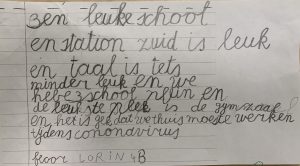 zén leuke school
en station zuid is leuk
en taal is iets
minder leuk en we
hebe 3 school plijn en
de leukste plek is de gymzaal
en het is gek dat we thuis moeste werken
tijdens cononavirus
floor LORIN 4B